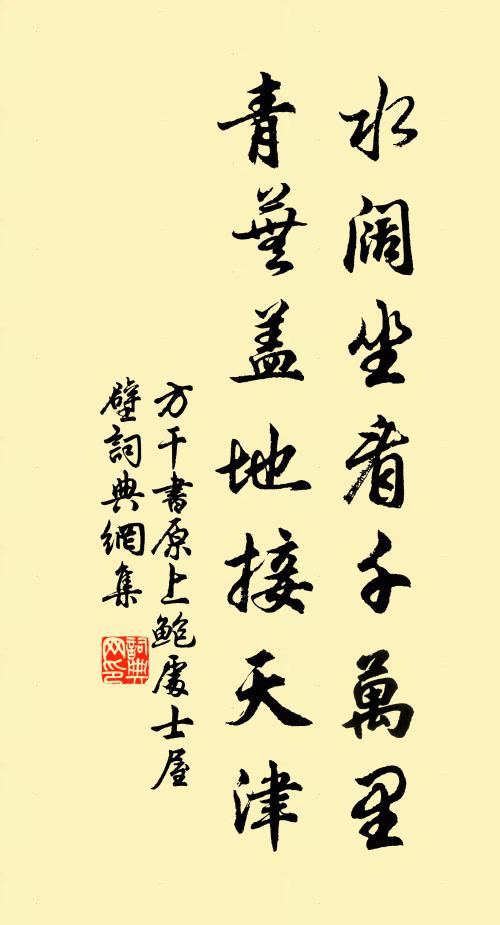 水阔坐看千萬里
青蕪盖地接天津
方干書原上鮑處士屋
壁詞典網集
詞典
网印